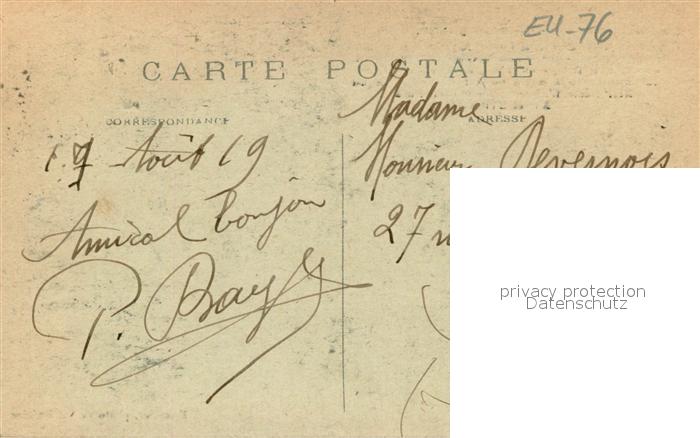 EU-76
CARTE POSTALE
CORRESPONDANCE
ADRESSE
17 Août 19
Amical bonjour
P. Bayle
Madame
Monsieur Devernois
27
privacy protection
Datenschutz